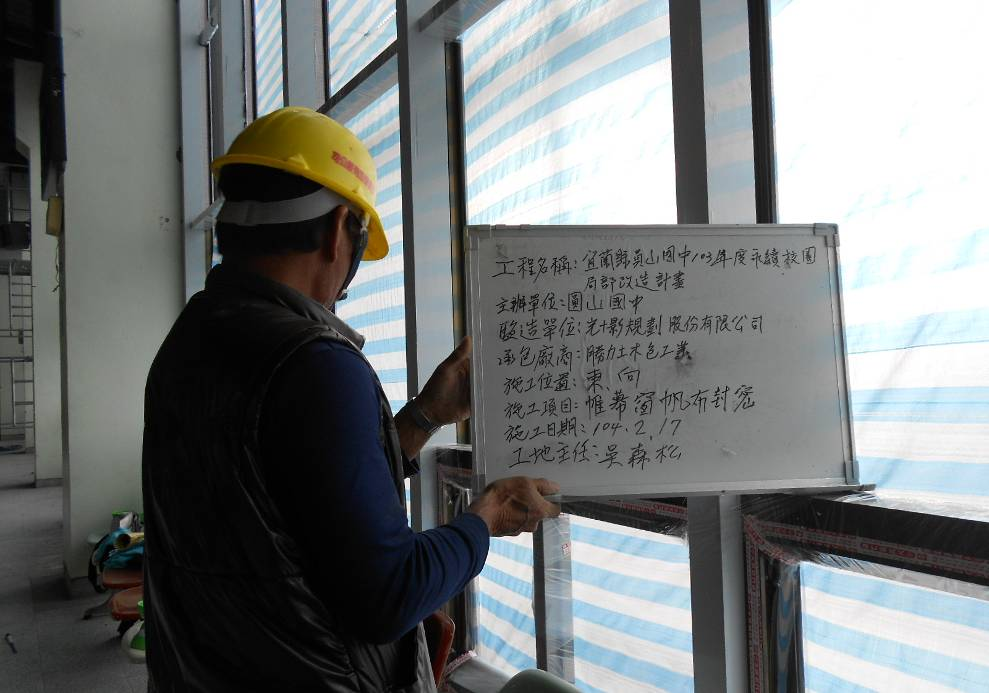 工程名稱:宜蘭縣員山國中103年度永續校園
局部改造計畫
主辦單位:圓山國中
監造單位:光+影規劃股份有限公司
承包廠商:騰力土木包工業
施工位置:東、向
施工項目:帷幕窗帆布封密
施工日期:104.2.17
工地主任:吳森松